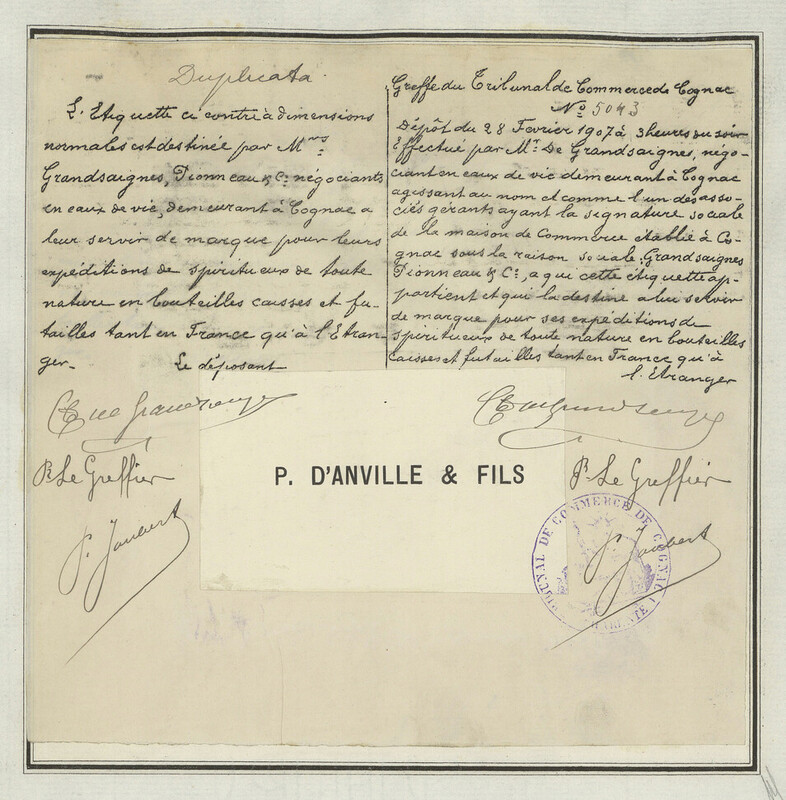 Duplicata.
L'Etiquette ci contre à dimensions
normales est destinée par Mrs
Grandsaignes, Pionneau & Cie négociants
en eaux de vie, demeurant à Cognac a
leur servir de marque pour leurs
expéditions de spiritueux de toute
nature en bouteilles caisses et fu-
tailles tant en France qu'à l'Etran-
ger.
Le déposant
P. Le Greffier
P. Joubert
Greffe du Tribunal de Commerce de Cognac
No 5043
Dépôt du 28 Fevrier 1907 à 3 heures du soir
Effectué par Mr. De Grandsaignes, négo-
ciant en eaux de vie demeurant à Cognac
agissant au nom et comme l'un des asso-
ciés gérants ayant la signature sociale
de la maison de Commerce établie à Co-
gnac sous la raison sociale: Grandsaignes
Pionneau & Cie, a qui cette étiquette ap-
partient et qui la destine a lui servir
de marque pour ses expéditions de
spiritueux de toute nature en bouteilles
caisses et futailles tant en France qu'à
l'Etranger
P. Le Greffier
P. Joubert
P. D'ANVILLE & FILS
TRIBUNAL DE COMMERCE DE COGNAC